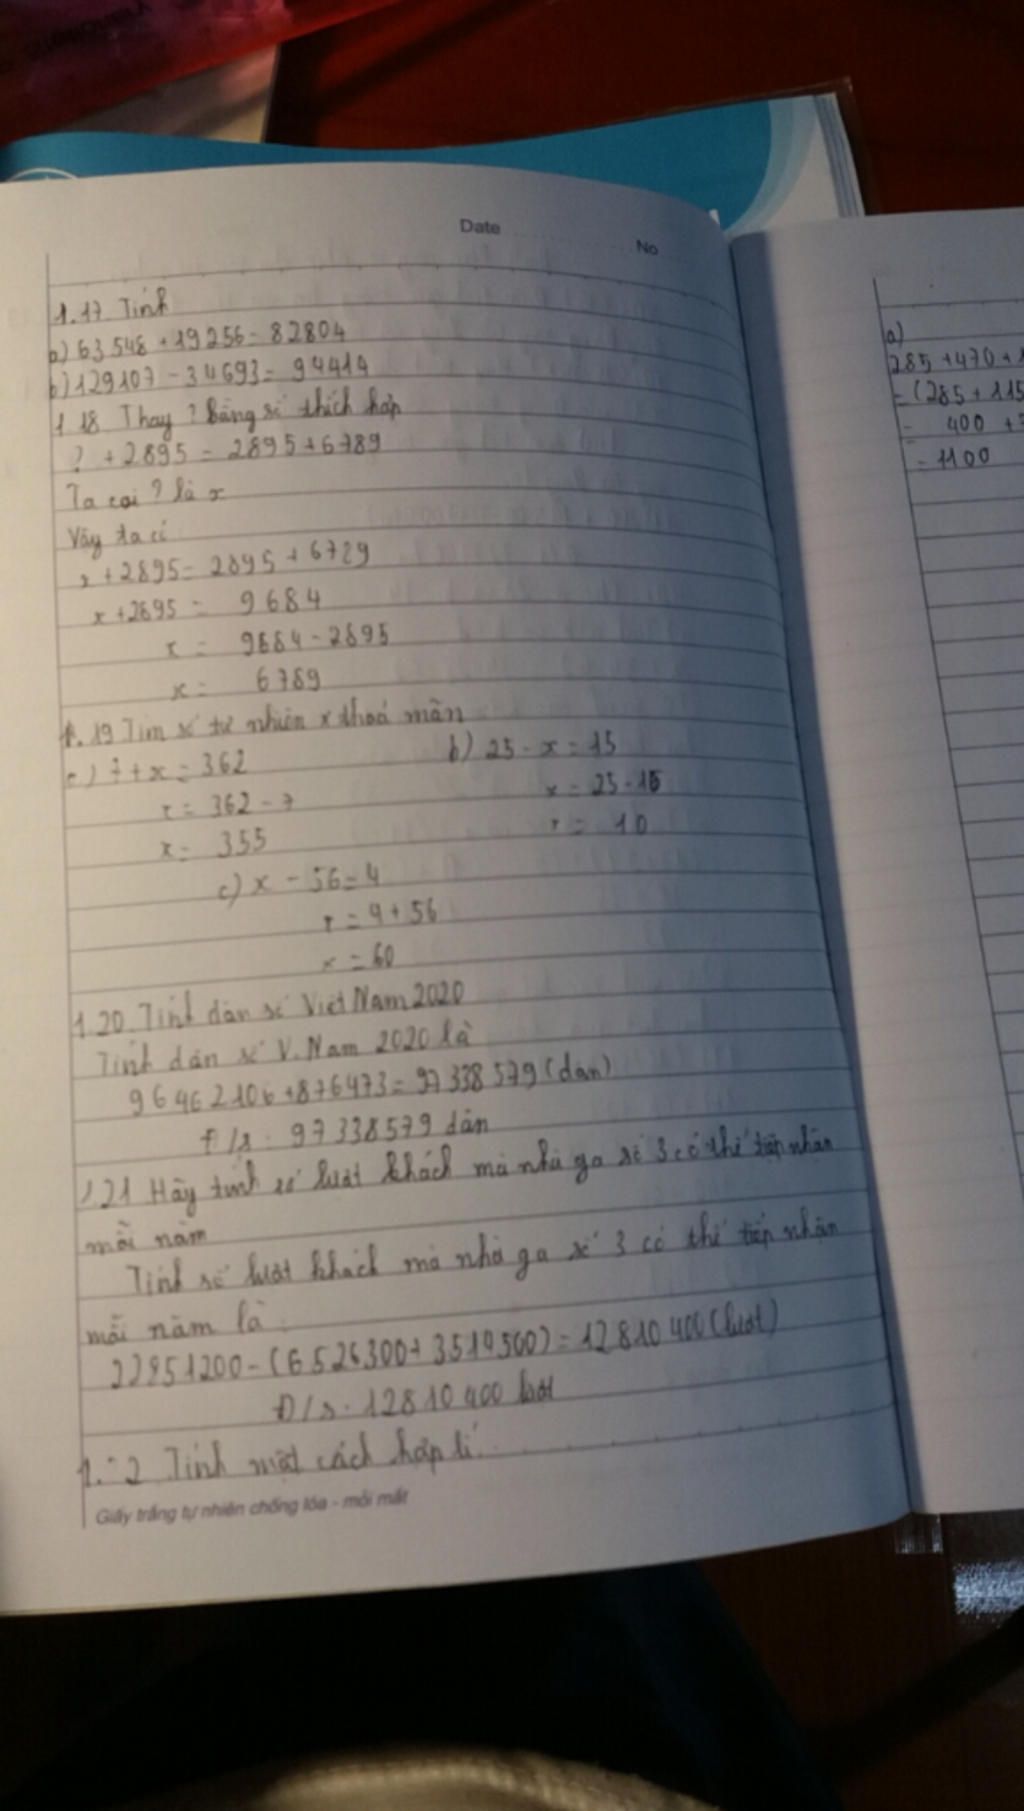 Date
No
1.17 Tính
a) 63548 + 19256 = 82804
b) 129107 - 34693 = 94414
1.18 Thay ? bằng số thích hợp
? + 2895 = 2895 + 6789
Ta coi ? là x
Vậy ta có
x + 2895 = 2895 + 6789
x + 2895 = 9684
x = 9684 - 2895
x = 6789
1.19 Tìm số tự nhiên x thoả mãn
a) 7 + x = 362 b) 25 - x = 15
x = 362 - 7 x = 25 - 15
x = 355 x = 10
c) x - 56 = 4
x = 4 + 56
x = 60
1.20 Tính dân số Việt Nam 2020
Tính dân số V. Nam 2020 là
96462106 + 876473 = 97338579 (dân)
Đ/s: 97338579 dân
1.21 Hãy tính số lượt khách mà nhà ga số 3 có thể tiếp nhận
mỗi năm
Tính số lượt khách mà nhà ga số 3 có thể tiếp nhận
mỗi năm là:
22851200 - (6526300 + 3514500) = 12810400 (lượt)
Đ/s: 12810400 lượt
1.22 Tính một cách hợp lí
Giấy trắng tự nhiên chống lóa - mỏi mắt
a)
285 + 470 + 1
= (285 + 115
= 400 +
= 1100